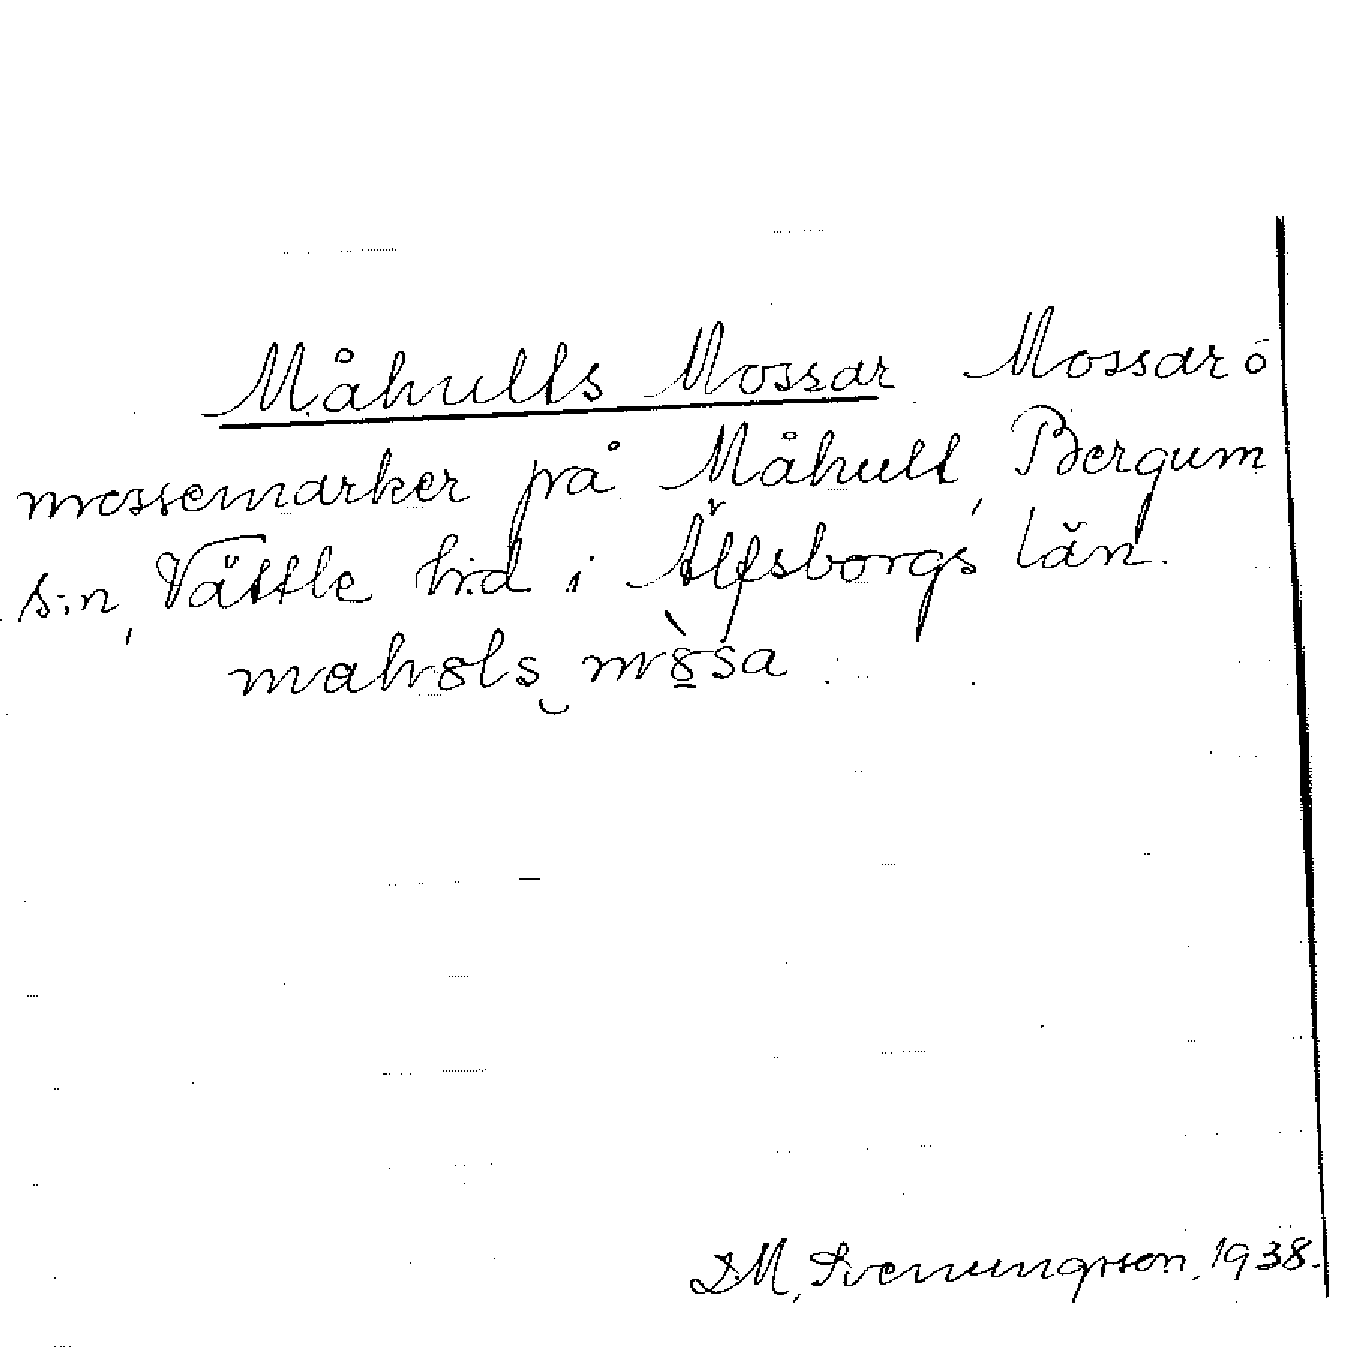 Måhults Mossar Mossar o
mossemarker på Måhult, Bergum
s:n, Vättle h:d i Älfsborgs län.
mahɷls mɷ̀sa
SM, Svenungsson, 1938.